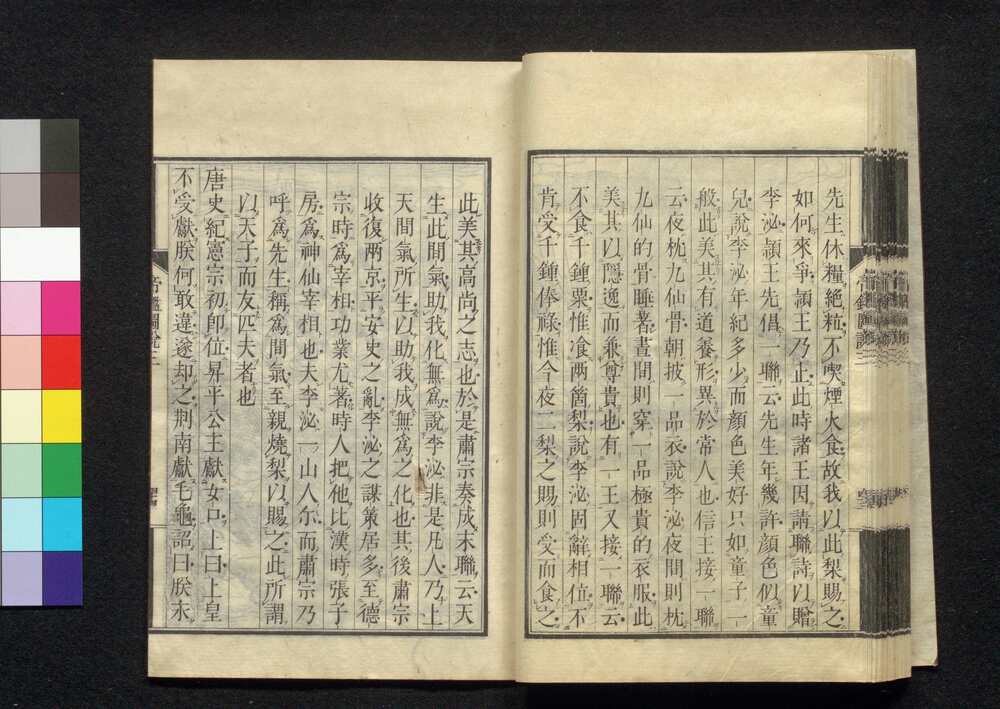 先生休糧絶粒不喫煙火食故我以此梨賜之
如何來爭頴王乃止此時諸王因請聯詩以贈
李泌頴王先倡一聯云先生年幾許顏色似童
兒說李泌年紀多少而顏色美好只如童子一
般此美其有道養形異於常人也信王接一聯
云夜枕九仙骨朝披一品衣說李泌夜間則枕
九仙的骨睡著晝間則穿一品極貴的衣服此
美其以隱逸而兼尊貴也有一王又接一聯云
不食千鍾粟惟飡兩箇梨說李泌固辭相位不
肯受千鍾俸祿惟今夜二梨之賜則受而食之
此美其高尚之志也於是肅宗奏成末聯云天
生此間氣助我化無爲說李泌非是凡人乃上
天間氣所生以助我成無爲之化也其後肅宗
收復两京平安史之亂李泌之謀策居多至德
宗時爲宰相功業尤著時人把他比漢時張子
房爲神仙宰相也夫李泌一山人尓而肅宗乃
呼爲先生稱爲間氣至親燒梨以賜之此所謂
以天子而友匹夫者也
唐史紀憲宗初卽位昇平公主獻女口上曰上皇
不受獻朕何敢違遂却之荆南獻毛龜詔曰朕永
帝鑑圖說三